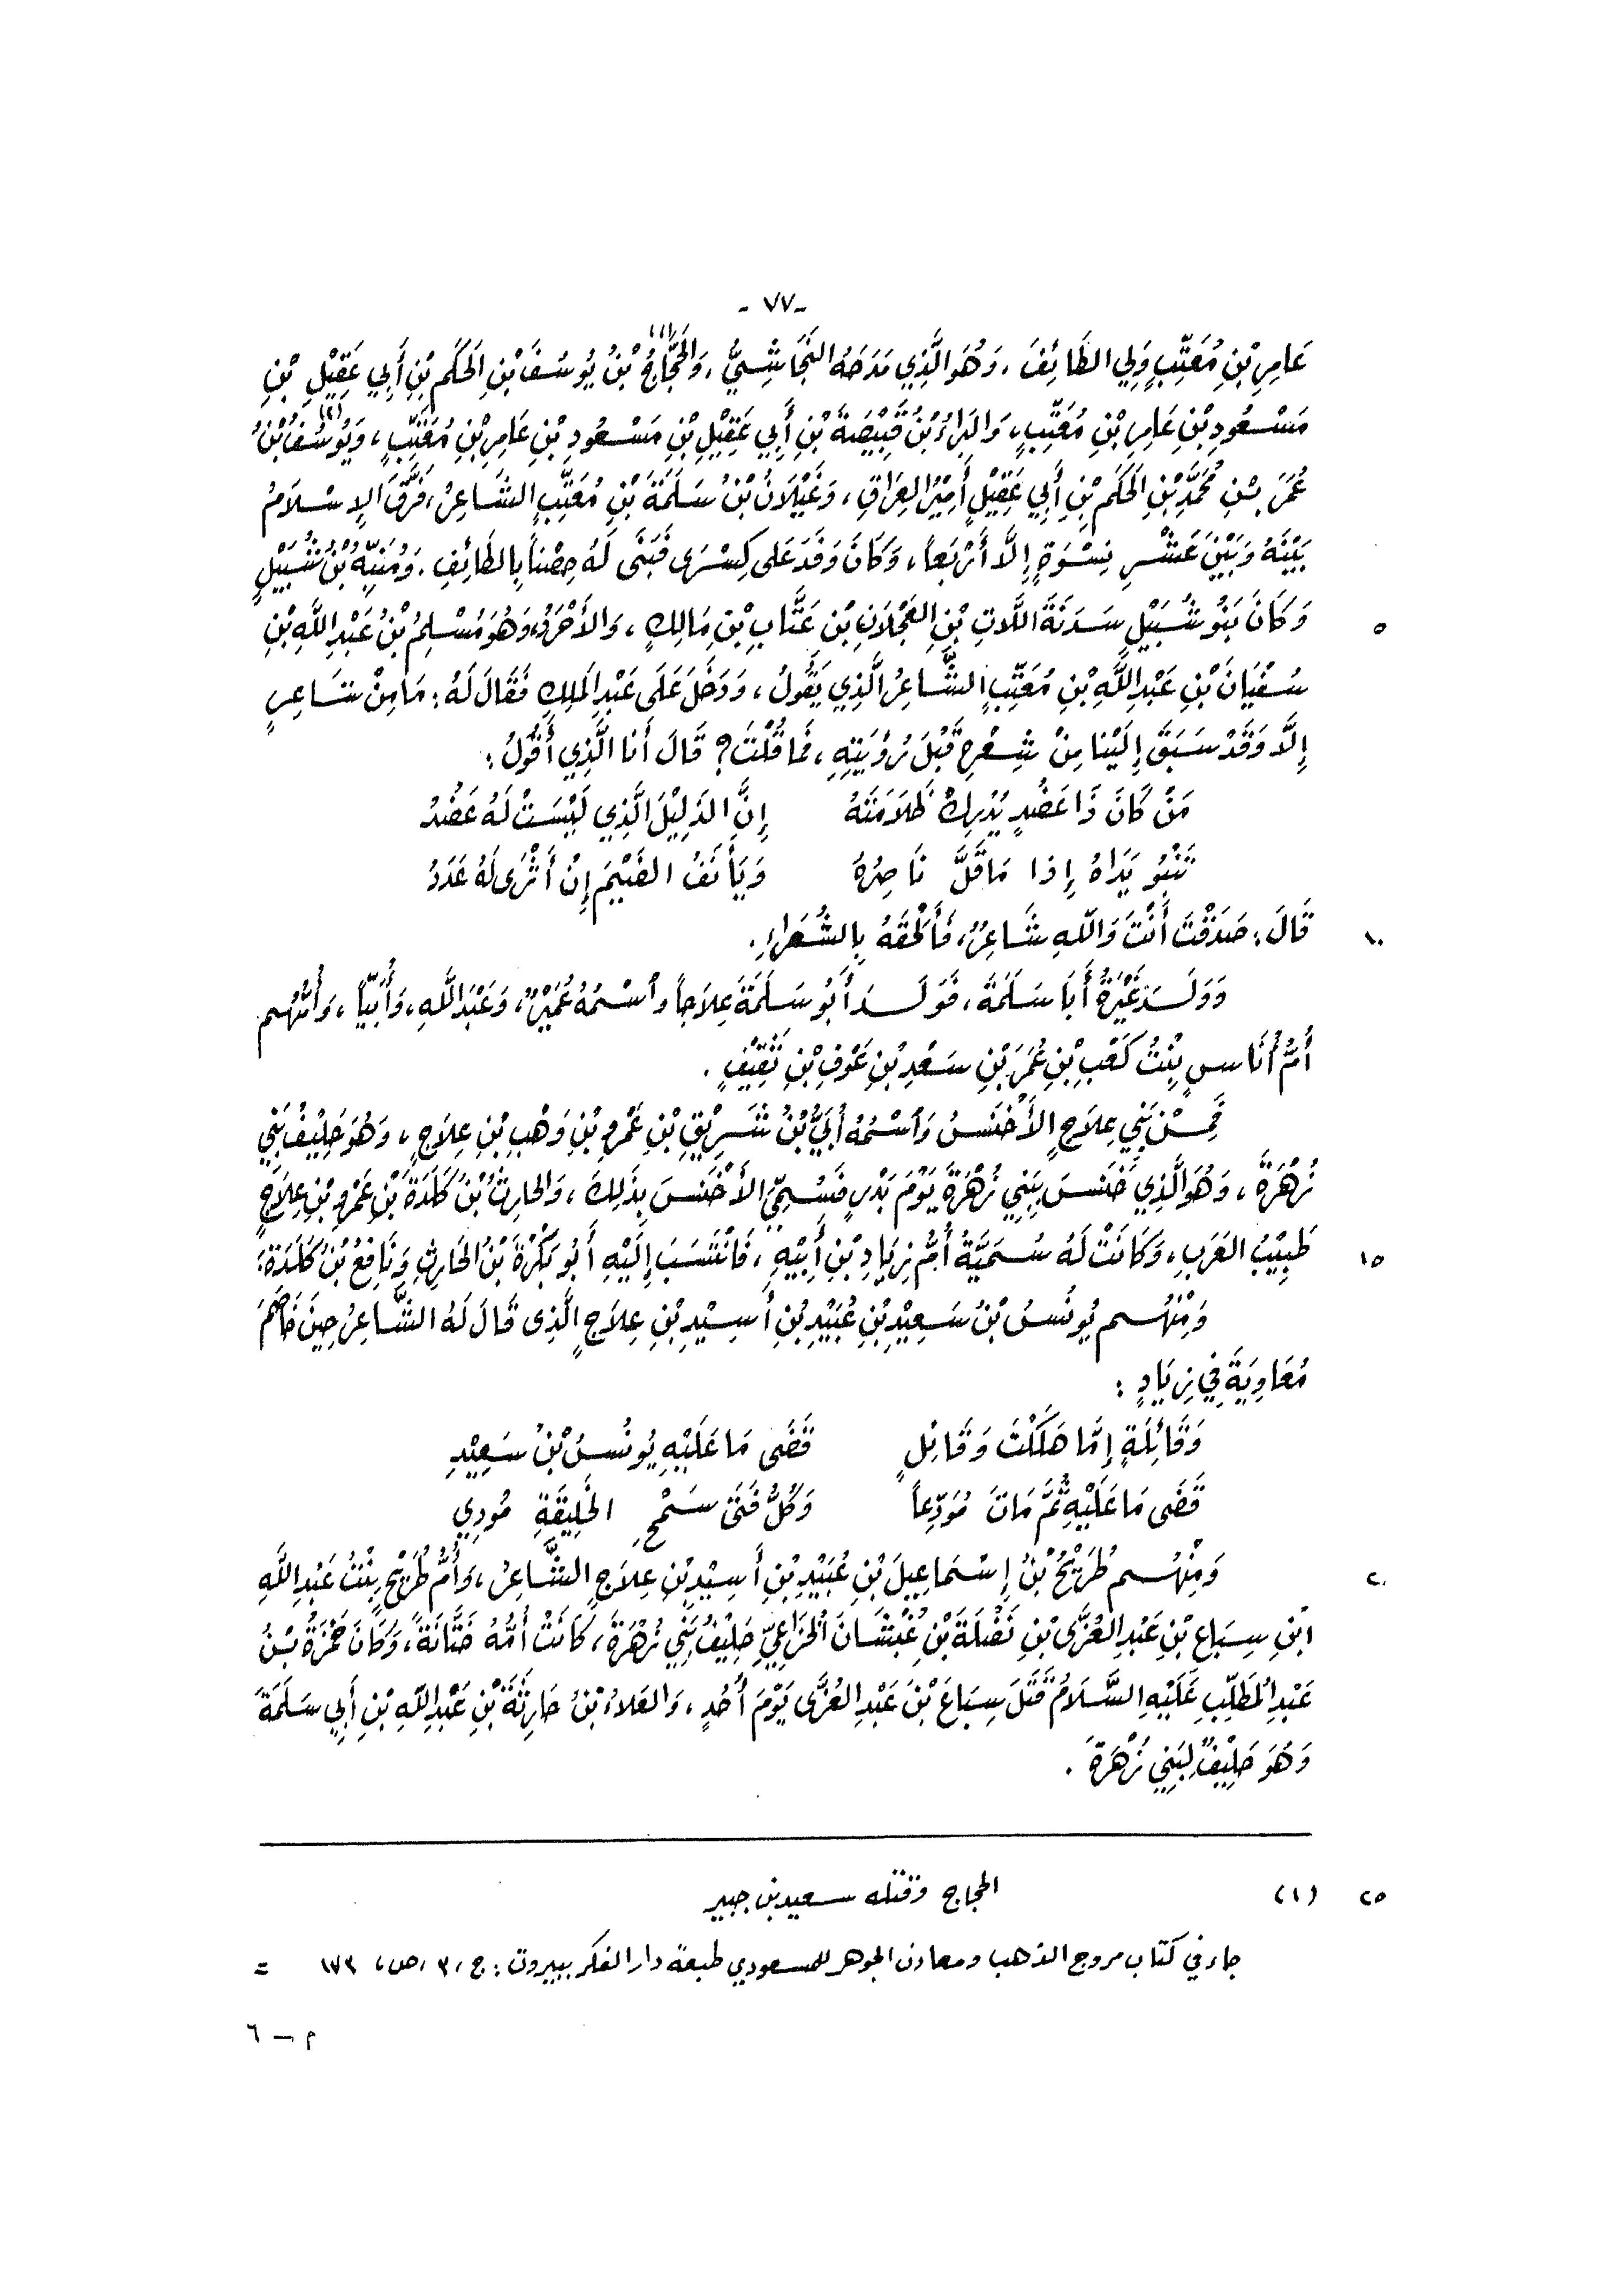 - ٧٧ -
عَامِرِ بْنِ مُعَتِّبٍ وَلِي الطَّائِفَ ، وَهُوَ الَّذِي مَدَحَهُ النَّجَاشِيُّ ، وَالحَجَّاجُ (١) بْنُ يُوسُفَ بْنِ الحَكَمِ بْنِ أَبِي عَقِيْلِ بْنِ
مَسْعُودِ بْنِ عَامِرِ بْنِ مُعَتِّبٍ ، وَالبَرَاءُ بْنُ قَبِيْصَةَ بْنِ أَبِي عَقِيْلِ بْنِ مَسْعُودِ بْنِ عَامِرِ بْنِ مُعَتِّبٍ ، وَيُوسُفُ (٢) بْنُ
عُمَرَ بْنِ مُحَمَّدِ بْنِ الحَكَمِ بْنِ أَبِي عَقِيْلٍ أَمِيْرُ العِرَاقِ ، وَغَيْلَانُ بْنُ سَلَمَةَ بْنِ مُعَتِّبٍ الشَاعِرُ ، فَرَّقَ الإِسْلَامُ
بَيْنَهُ وَبَيْنَ عَشْرِ نِسْوَةٍ إِلَّا أَرْبَعاً ، وَكَانَ وَفَدَ عَلَى كِسْرَى فَبَنَى لَهُ حِصْناً بِالطَائِفِ . وَمُنَبِّهُ بْنُ شُبَيْلٍ
٥ وَكَانَ بَنُو شُبَيْلٍ سَدَنَةَ اللَّاتِ بْنِ العَجْلَانِ بْنِ عَتَّابِ بْنِ مَالِكٍ ، وَالأَجْرَدُ وَهُوَ مُسْلِمُ بْنُ عَبْدِ اللَّهِ بْنِ
سُفْيَانَ بْنِ عَبْدِ اللَّهِ بْنِ مُعَتِّبٍ الشَّاعِرُ الَّذِي يَقُولُ ، وَدَخَلَ عَلَى عَبْدِ المَلِكِ فَقَالَ لَهُ : مَا مِنْ شَاعِرٍ
إِلَّا وَقَدْ سَبَقَ إِلَيْنَا مِنْ شِعْرِهِ قَبْلَ رُؤْيَتِهِ ، فَمَا قُلْتَ ؟ قَالَ أَنَا الَّذِي أَقُولُ :
مَنْ كَانَ ذَا عَضُدٍ يُدْرِكْ ظُلَامَتَهُ إِنَّ الذَلِيْلَ الَّذِي لَيْسَتْ لَهُ عَضُدُ
تَنْبُو يَدَاهُ إِذا مَا قَلَّ نَاصِرُهُ وَيَأْنَفُ الضَيْمَ إِنْ أَثْرَى لَهُ عَدَدُ
١٠ قَالَ : صَدَقْتَ أَنْتَ وَاللّهِ شَاعِرٌ ، فَأَلْحَقَهُ بِالشُّعَرَاءِ .
وَوَلَدَ غِيَرَةُ أَبَا سَلَمَةَ ، فَوَلَدَ أَبُو سَلَمَةَ عِلَاجاً واْسْمُهُ عُمَيْرٌ ، وَعَبْدَ اللَّهِ ، وَأُبَيّاً ، وَأُمُّهُم
أُمُّ أُنَاسٍ بِنْتُ كَعْبِ بْنِ عُمَرَ بْنِ سَعْدِ بْنِ عَوْفِ بْنِ ثَقِيْفٍ .
فَمِنْ بَنِي عِلَاجٍ الأَخْنَسُ وَاْسْمُهُ أُبَيُّ بْنُ شَرِيْقِ بْنِ عَمْرِو بْنِ وَهْبِ بْنِ عِلَاجٍ ، وَهُوَ حَلِيْفُ بَنِي
زُهْرَةَ ، وَهُوَ الَّذِي خَنَسَ بِبَنِي زُهْرَةَ يَوْمَ بَدْرٍ فَسُمِّيَ الأَخْنَسَ بِذَلِكَ ، وَالحَارِثُ بْنُ كَلَدَةَ بْنِ عَمْرِو بْنِ عِلَاجٍ
١٥ طَبِيْبُ العَرَبِ ، وَكَانَتْ لَهُ سُمَيَّةُ أُمُّ زِيَادِ بْنِ أَبِيْهِ ، فَانْتَسَبَ إِلَيْهِ أَبُو بَكْرَةَ بْنُ الحَارِثِ وَنَافِعُ بْنُ كَلَدَةَ :
وَمِنْهُم يُونُسُ بْنُ سَعِيْدِ بْنِ عُبَيْدِ بْنِ أَسِيْدِ بْنِ عِلَاجٍ الَّذِى قَالَ لَهُ الشَّاعِرُ حِينَ خَاصَمَ
مُعَاوِيَةَ فِي زِيَادٍ :
وَقَائِلَةٍ إِمَّا هَلَكْتَ وَقَائِلٍ قَضَى مَا عَلَيْهِ يُونُسُ بْنُ سَعِيْدِ
قَضَى مَا عَلَيْهِ ثُمَّ مَاتَ مُوَدِّعاً وَكُلُّ فَتَىً سَمْحِ الخَلِيقَةِ مُودِي
٢٠ وَمِنْهُم طُرَيْحُ بْنُ إِسْمَاعِيلَ بْنِ عُبَيْدِ بْنِ أَسِيْدِ بْنِ عِلَاجٍ الشَّاعِرُ ، وَأُمُّ طُرَيْحٍ بِنْتُ عَبْدِ اللَّهِ
ابْنِ سِبَاعِ بْنِ عَبْدِ العُزَّى بْنِ نَضْلَةَ بْنِ غُبْشَانَ الخُزَاعِيِّ حَلِيْفُ بَنِي زُهْرَةَ ، كَانَتْ أُمُّهُ خَتَّانَةً ، وَكَانَ حَمْزَةُ بْنُ
عَبْدِ المُطَلِّبِ عَلَيْهِ السَّلَامُ قَتَلَ سِبَاعَ بْنَ عَبْدِ العُزَّى يَوْمَ أُحُدٍ ، وَالعَلاءُ بْنُ حَارِثَةَ بْنِ عَبْدِ اللّهِ بْنِ أَبِي سَلَمَةَ
وَهُوَ حَلِيْفٌ لِبَنِي زُهْرَةَ .
٢٥ (١) الحجاج وقتله سعيد بن جبير
جاء في كتاب مروج الذهب ومعادن الجوهر للمسعودي طبعة دار الفكر ببيروت : ج ، ٣ ، ص ، ١٧٣ =
م - ٦